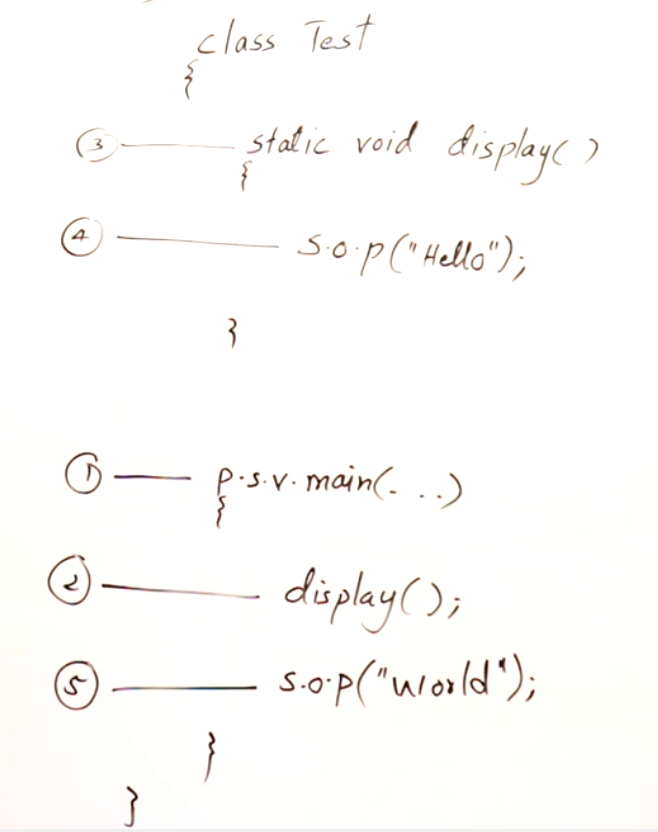 class Test
{
③ static void display()
{
④ S.o.p("Hello");
}
① p.s.v. main(. ..)
{
② display();
⑤ S.o.p("World");
}
}